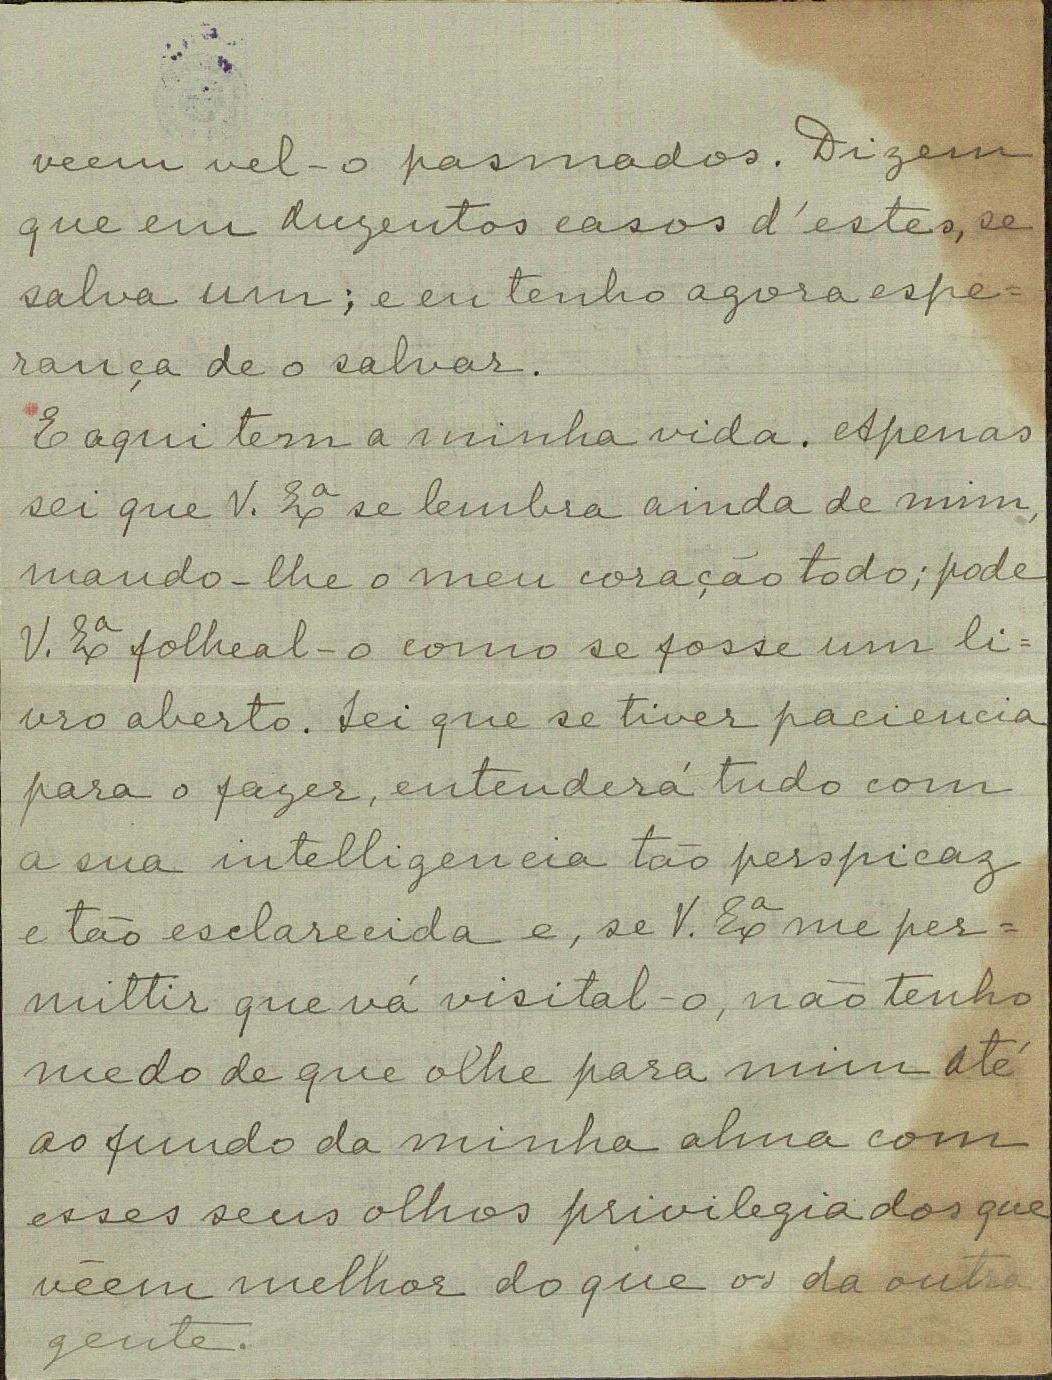 veem vel-o pasmados. Dizem
que em duzentos casos d'estes, se
salva um; e eu tenho agora espe=
rança de o salvar.
E aqui tem a minha vida. Apenas
sei que V. Exª se lembra ainda de mim,
mando-lhe o meu coração todo; pode
V. Exª folheal-o como se fosse um li=
vro aberto. Sei que se tiver paciencia
para o fazer, entenderá tudo com
a sua intelligencia tão perspicaz
e tão esclarecida e, se V. Exª me per=
mittir que vá visital-o, não tenho
medo de que olhe para mim até
ao fundo da minha alma com
esses seus olhos privilegiados que
vêem melhor do que os da outra
gente.